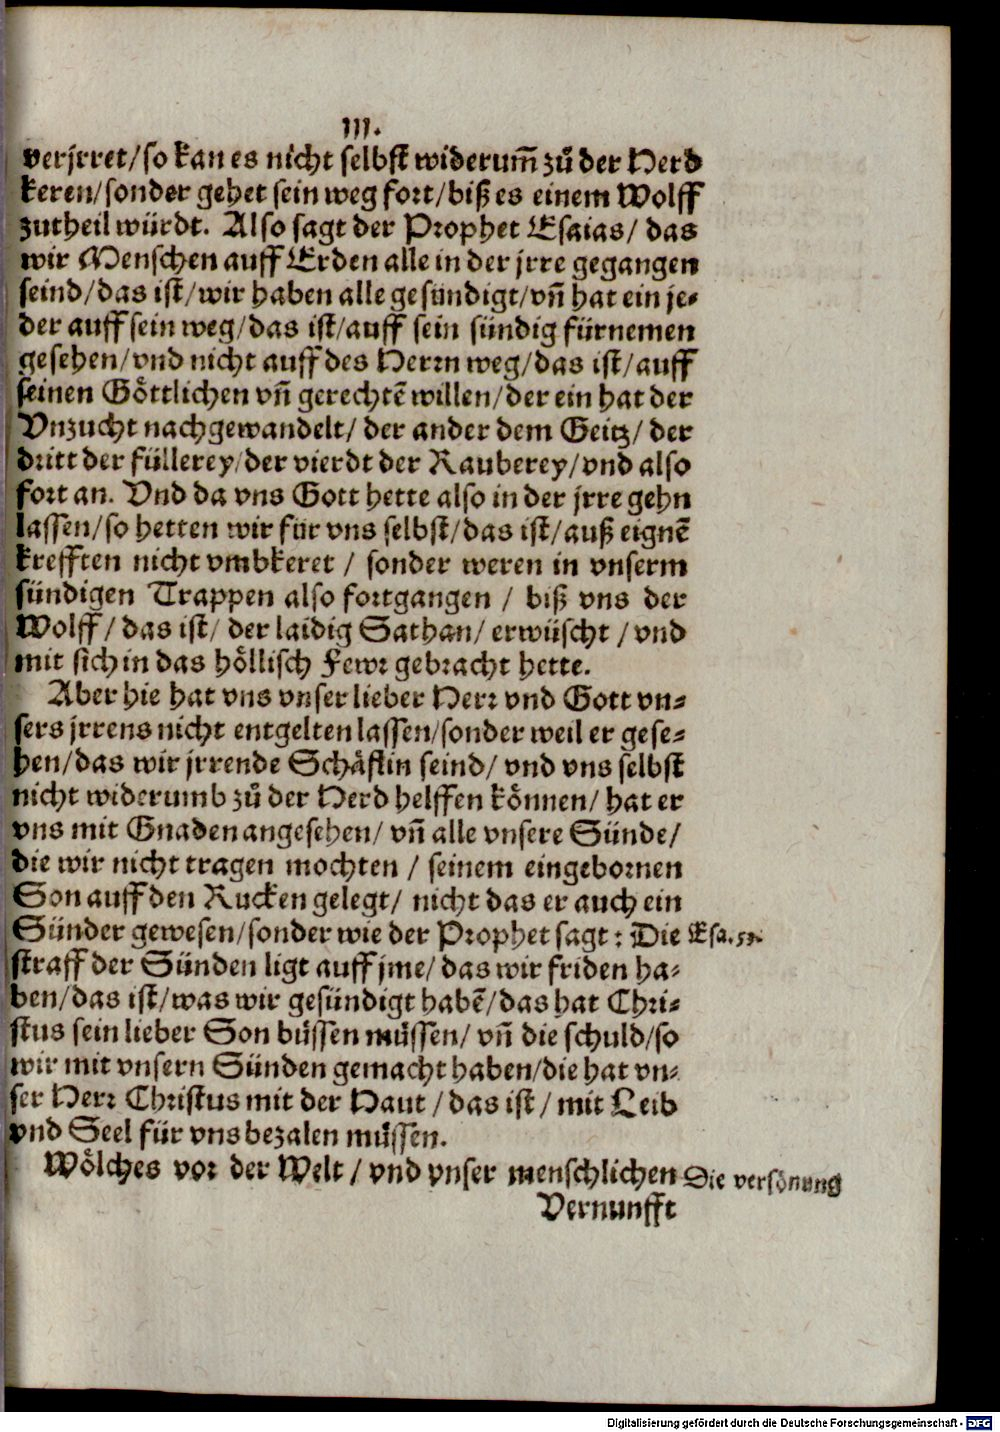 III.
verjrret/so kan es nicht selbst widerum̃ zů der Herd
keren/sonder gehet sein weg fort/biß es einem Wolff
zutheil würdt. Also sagt der Prophet Esaias/ das
wir Menschen auff Erden alle in der jrre gegangen
seind/das ist/wir haben alle gesündigt/vñ hat ein je-
der auff sein weg/das ist/auff sein sündig fürnemen
gesehen/vnd nicht auff des Herrn weg/das ist/auff
seinen Göttlichen vñ gerechtẽ willen/der ein hat der
Vnzucht nachgewandelt/ der ander dem Geitz/ der
dritt der füllerey/der vierdt der Rauberey/vnd also
fort an. Vnd da vns Gott hette also in der jrre gehn
lassen/so hetten wir für vns selbst/das ist/auß eignẽ
krefften nicht vmbkeret / sonder weren in vnserm
sündigen Trappen also fortgangen / biß vns der
Wolff/ das ist/ der laidig Sathan/ erwüscht /vnd
mit sich in das höllisch Fewr gebracht hette.
Aber hie hat vns vnser lieber Herr vnd Gott vn-
sers jrrens nicht entgelten lassen/sonder weil er gese-
hen/das wir jrrende Schäflin seind/ vnd vns selbst
nicht widerumb zů der Herd helffen können/ hat er
vns mit Gnaden angesehen/ vñ alle vnsere Sünde/
die wir nicht tragen mochten / seinem eingebornen
Son auff den Rucken gelegt/ nicht das er auch ein
Sünder gewesen/sonder wie der Prophet sagt: Die Esa. 53.
straff der Sünden ligt auff jme/ das wir friden ha-
ben/das ist/was wir gesündigt habẽ/das hat Chri-
stus sein lieber Son büssen müssen/ vñ die schuld/so
wir mit vnsern Sünden gemacht haben/die hat vn-
ser Herr Christus mit der Haut /das ist/ mit Leib
vnd Seel für vns bezalen müssen.
Wölches vor der Welt/ vnd vnser menschlichen Die versönung
Vernunfft
Digitalisierung gefördert durch die Deutsche Forschungsgemeinschaft - DFG